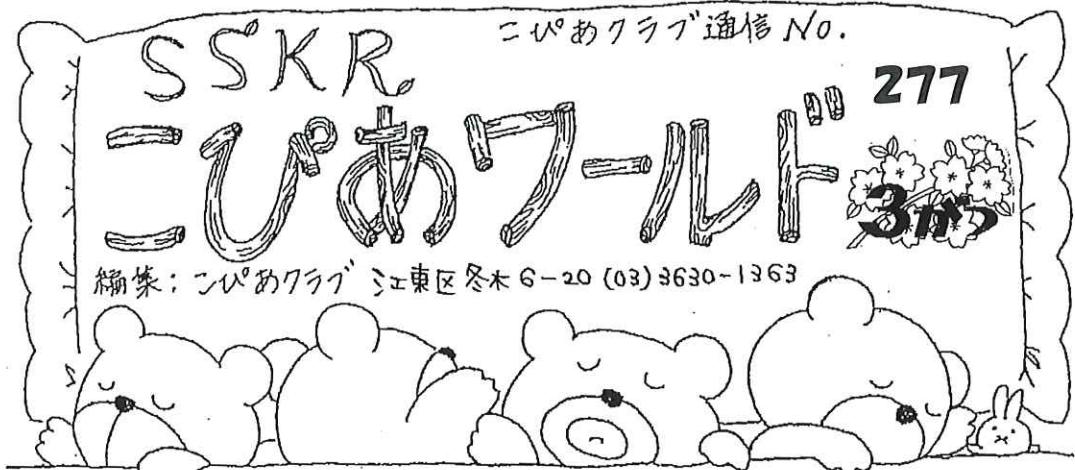 こぴあクラブ通信 No.
277
SSKR
こぴあワールド
3がつ
編集：こぴあクラブ 江東区冬木6-20 (03)3630-1363